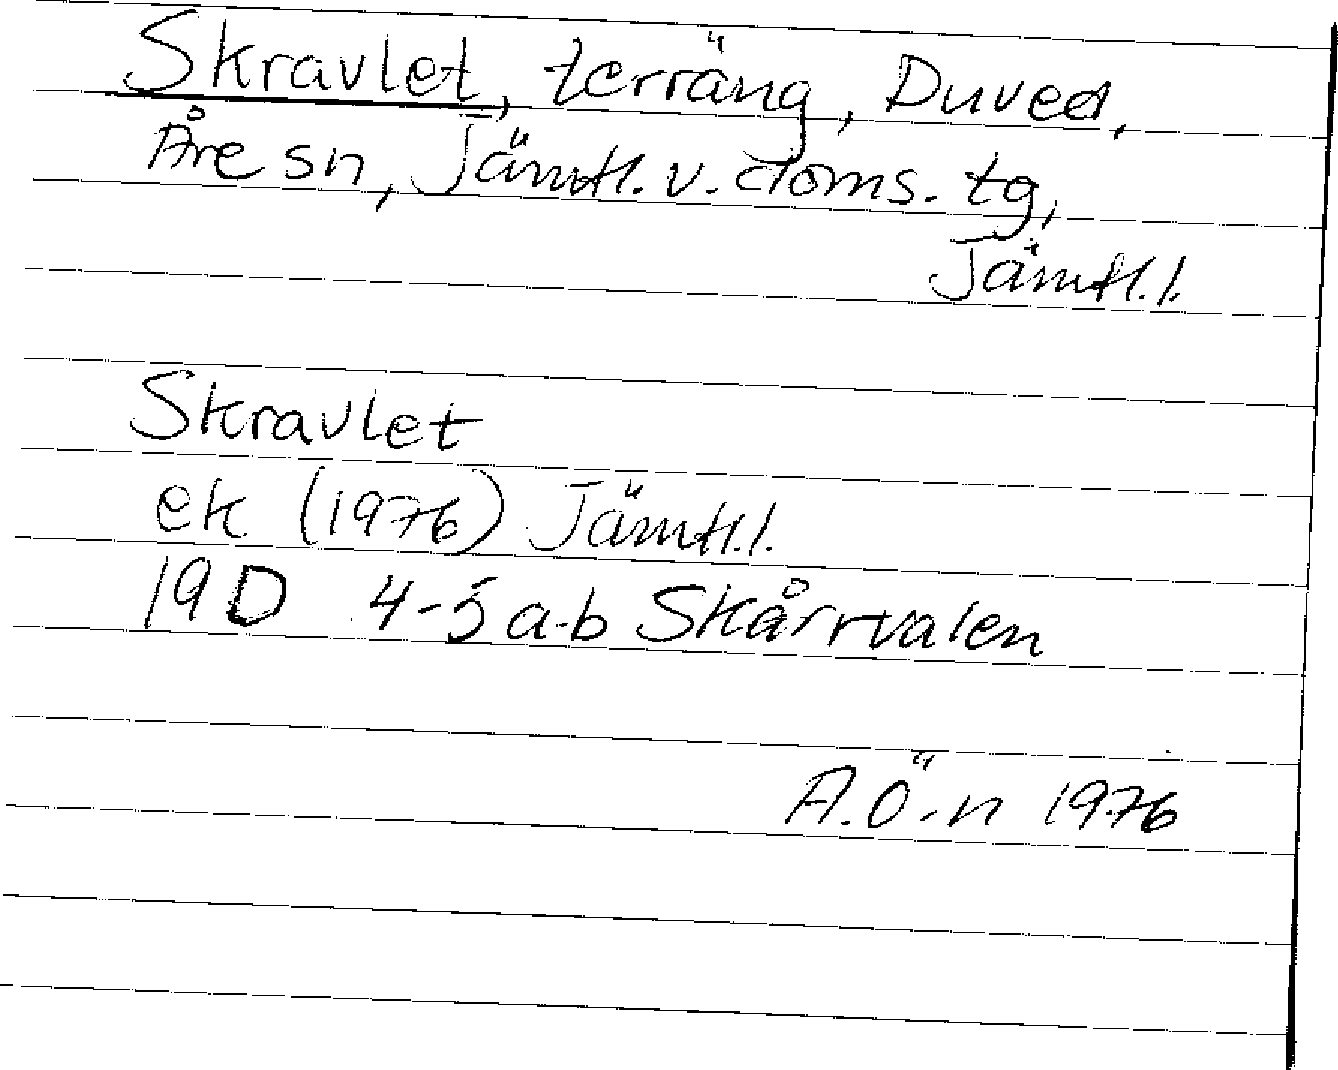 Skravlet, terräng, Duved,
Åre sn, Jämtl. v. doms. tg,
Jämtl. l.
Skravlet
ek (1976) Jämtl. l.
19D 4-5 a-b Skårrvalen
A. Ö-n 1976